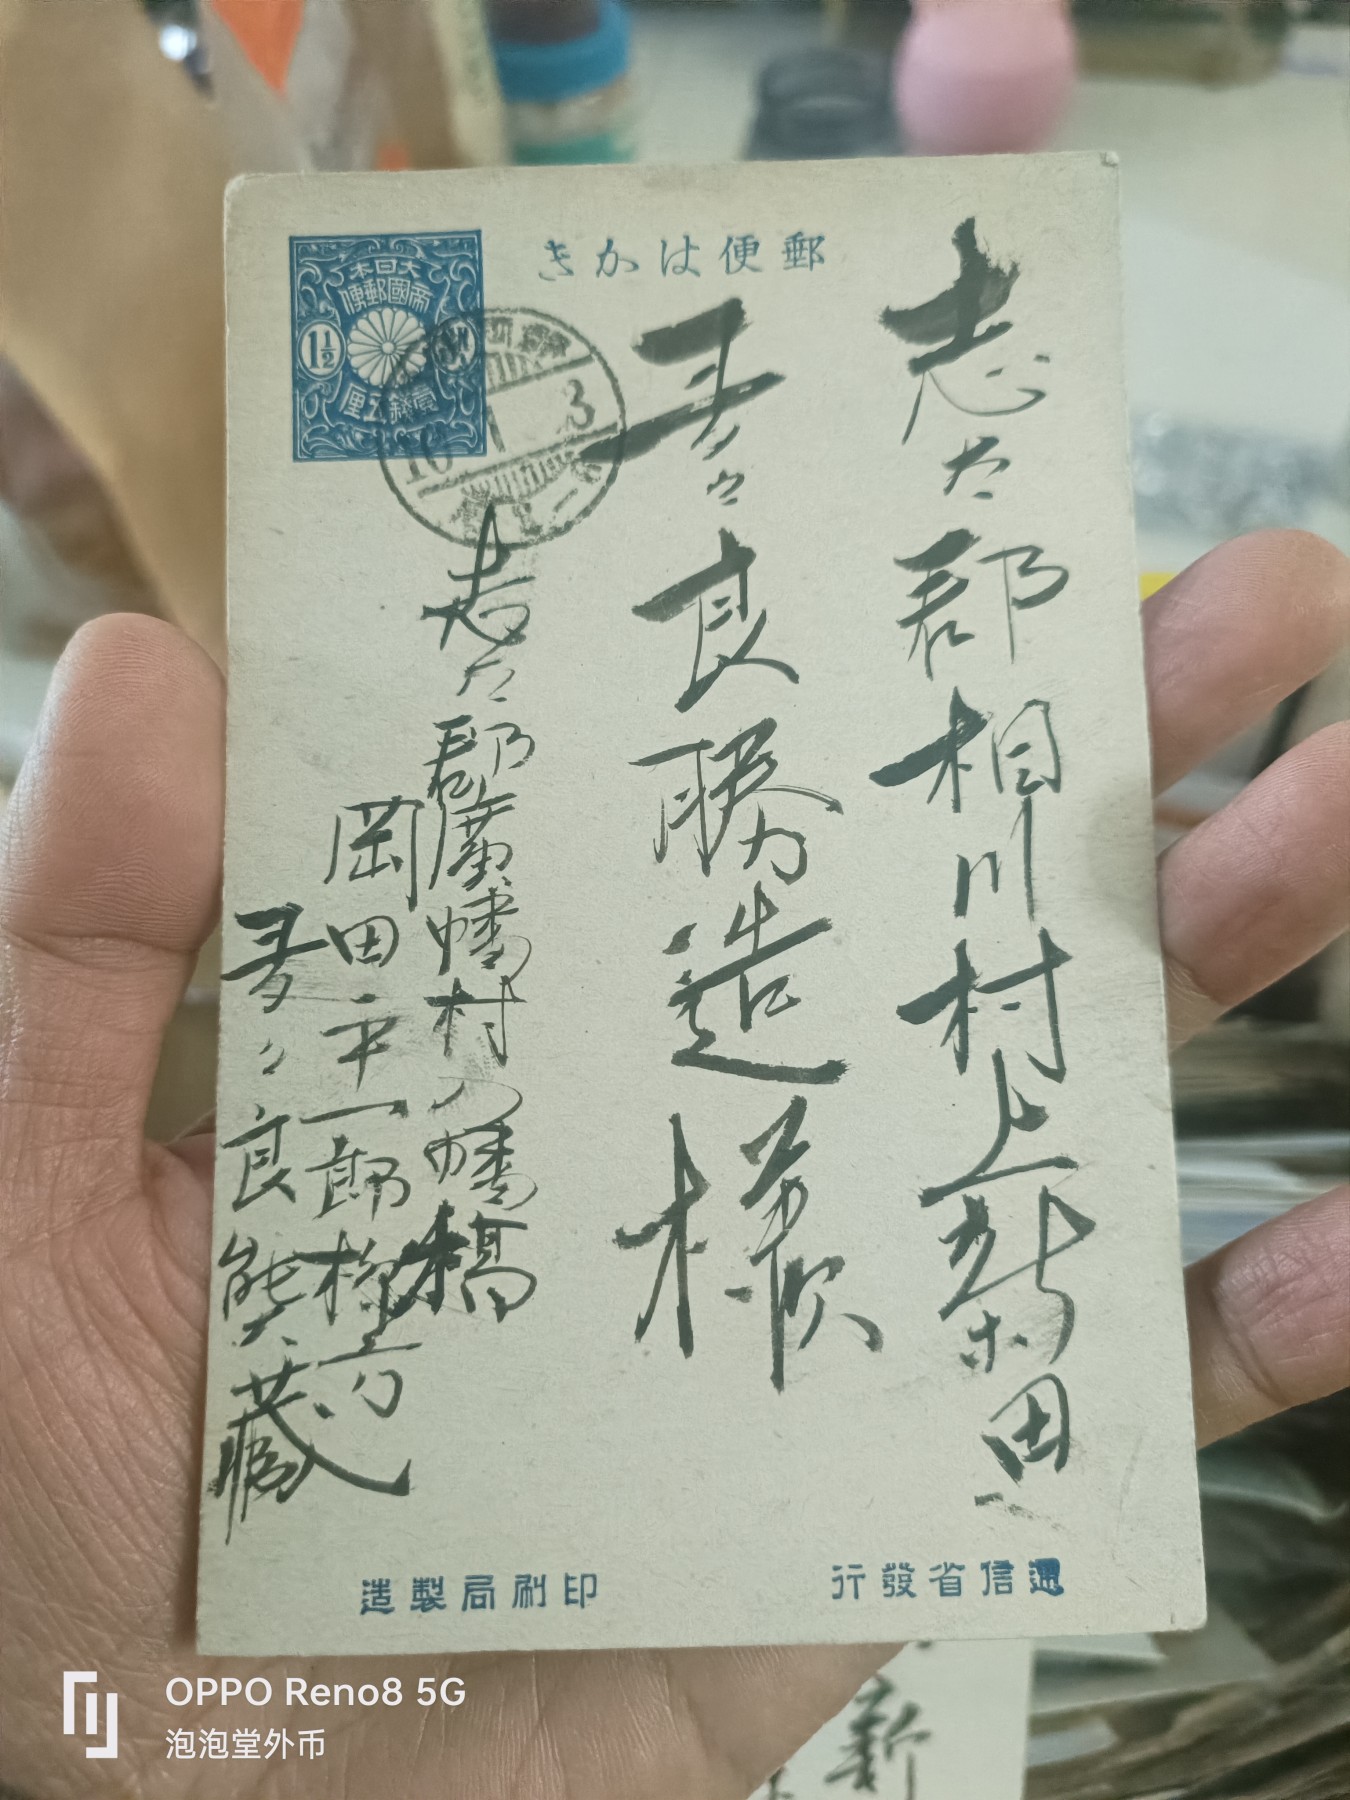 郵便はかき
大日本
帝國郵便
1½
壹錢五厘
10 1 3
志太郡相川村上新田
多々良勝造様
志太郡廣幡村八幡橋
岡田平一郎様方
多々良熊藏
逓信省發行
印刷局製造
OPPO Reno8 5G
泡泡堂外币
新